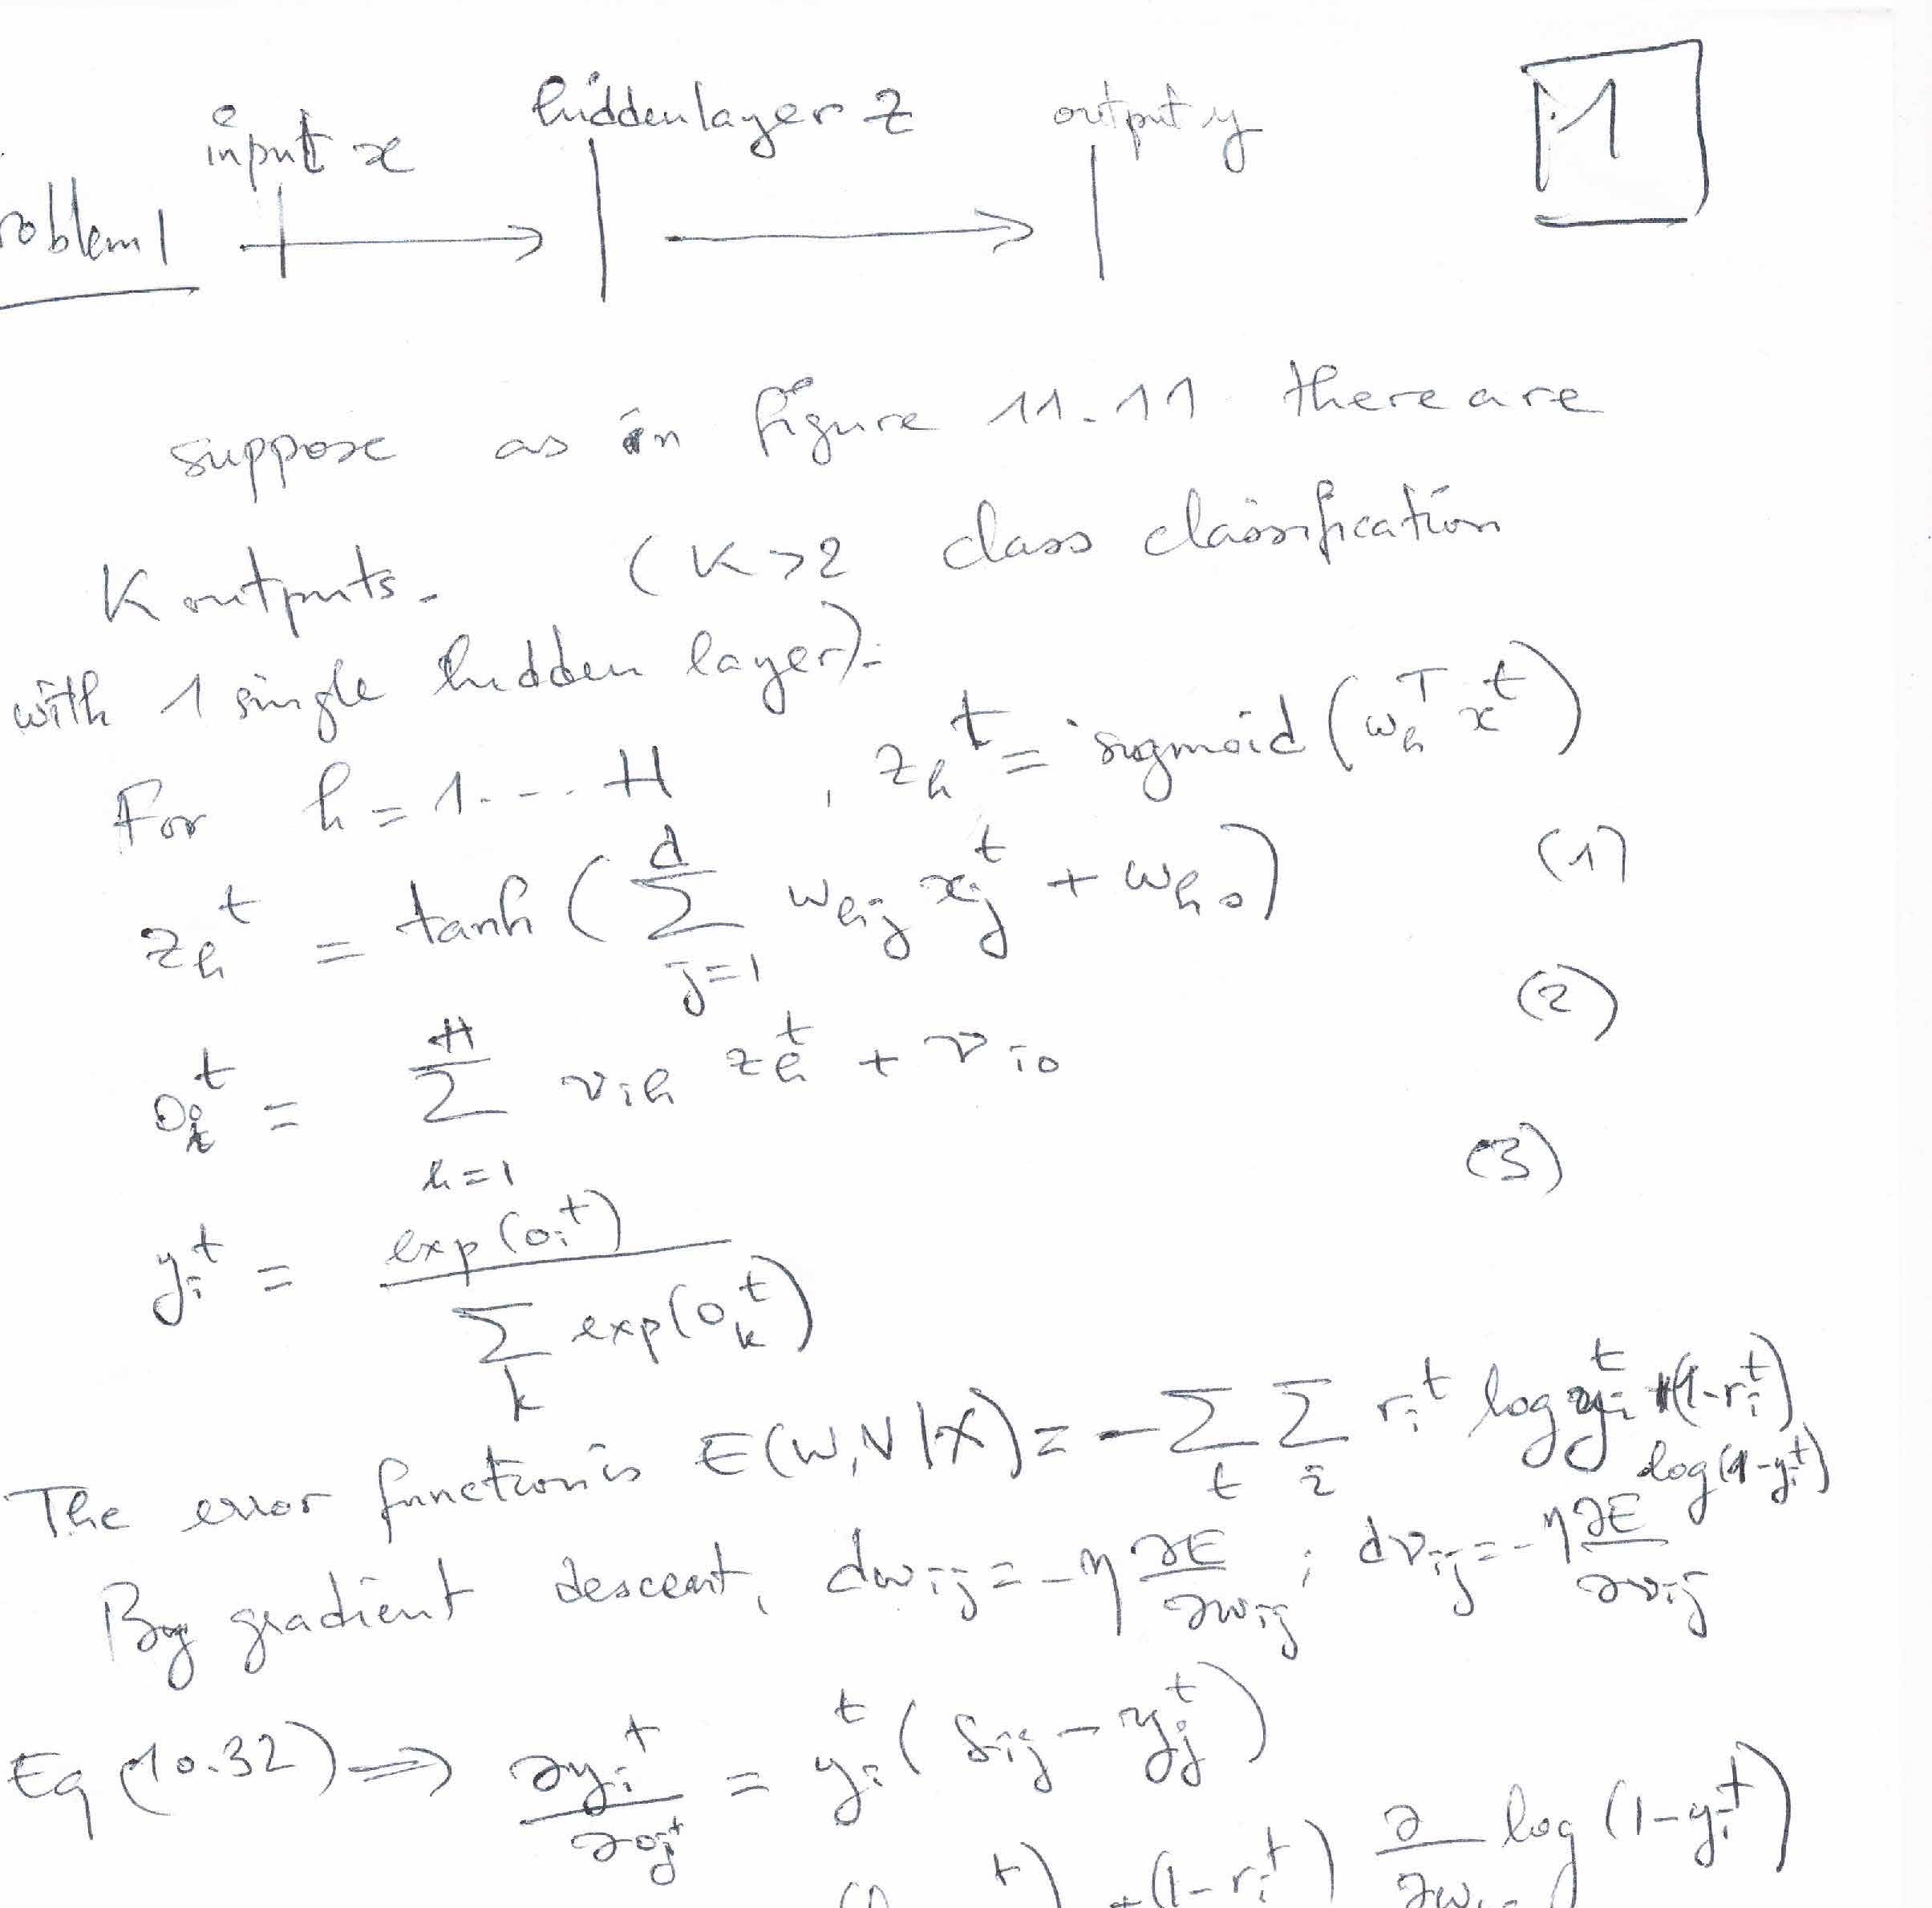 input x hidden layer z output y 1
roblem 1
suppose as in figure 11.11 there are
K outputs. (K>2 class classification
with 1 single hidden layer):
For h = 1 --- H , z_h^t = sigmoid (w_h^T x^t)
z_h^t = tanh ( Σ_{j=1}^{d} w_{hj} x_j^t + w_{h0} ) (1)
o_i^t = Σ_{h=1}^{H} v_{ih} z_h^t + v_{i0} (2)
y_i^t = exp(o_i^t) / Σ_k exp(o_k^t) (3)
The error function is E(W,V|X) = - Σ_t Σ_i r_i^t log y_i^t + (1-r_i^t) log(1-y_i^t)
By gradient descent, dw_{ij} = -η ∂E/∂w_{ij} ; dv_{ij} = -η ∂E/∂v_{ij}
Eq (10.32) ⟹ ∂y_i^t/∂o_j^t = y_i^t ( δ_{ij} - y_j^t )
+ (1-r_i^t) ∂/∂w log (1-y_i^t)